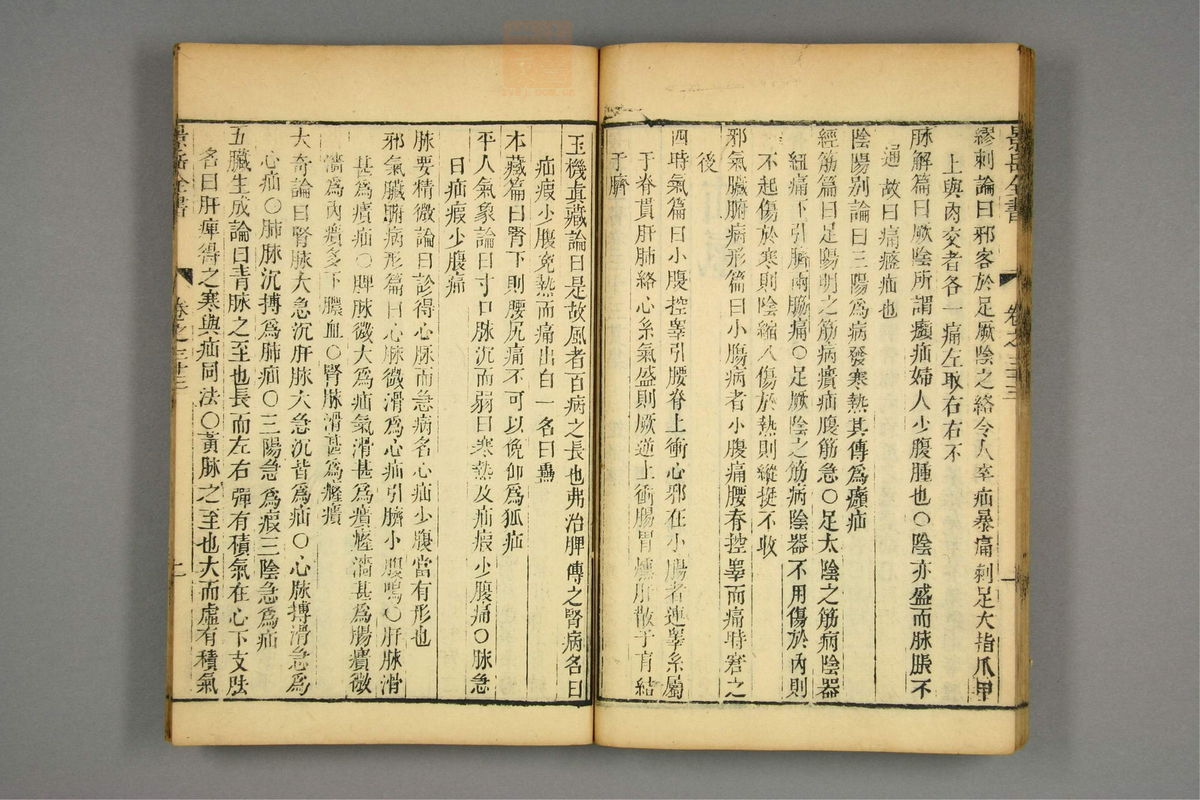 景岳全書 卷之三十三 一
繆刺論曰邪客於足厥陰之絡令人卒疝暴痛刺足大指爪甲
上與肉交者各一痏左取右右不
脉解篇曰厥陰所謂㿗疝婦人少腹腫也〇陰亦盛而脉脹不
通故曰㿗癃疝也
陰陽别論曰三陽爲病發寒熱其傳爲㿗疝
經筋篇曰足陽明之筋病㿗疝腹筋急〇足太陰之筋病陰器
紐痛下引臍兩脇痛〇足厥陰之筋病陰器不用傷於内則
不起傷於寒則陰縮入傷於熱則縱挺不收
邪氣臟腑病形篇曰小腸病者小腹痛腰脊控睾而痛時窘之
後
四時氣篇曰小腹控睾引腰脊上衝心邪在小腸者連睾系屬
于脊貫肝肺絡心系氣盛則厥逆上衝腸胃燻肝散于肓結
于臍
玉機眞藏論曰是故風者百病之長也弗治脾傳之腎病名曰
疝瘕小腹寃熱而痛出白一名曰蠱
本藏篇曰腎下則腰尻痛不可以俛仰爲狐疝
平人氣象論曰寸口脉沉而弱曰寒熱及疝瘕少腹痛〇脉急
曰疝瘕少腹痛
脉要精微論曰診得心脉而急病名心疝少腹當有形也
邪氣臟腑病形篇曰心脉微滑爲心疝引臍小腹鳴〇肝脉滑
甚爲㿗疝〇脾脉微大爲疝氣滑甚爲㿗癃濇甚爲腸㿗微
濇爲内㿗多下膿血〇腎脉滑甚爲癃㿗
大奇論曰腎脉大急沉肝脉大急沉皆爲疝〇心脉搏滑急爲
心疝〇肺脉沉搏爲肺疝〇三陽急爲瘕三陰急爲疝
五臟生成論曰青脉之至也長而左右彈有積氣在心下支胠
名曰肝痺得之寒與疝同法〇黃脉之至也大而虛有積氣
景岳全書 卷之三十三 二